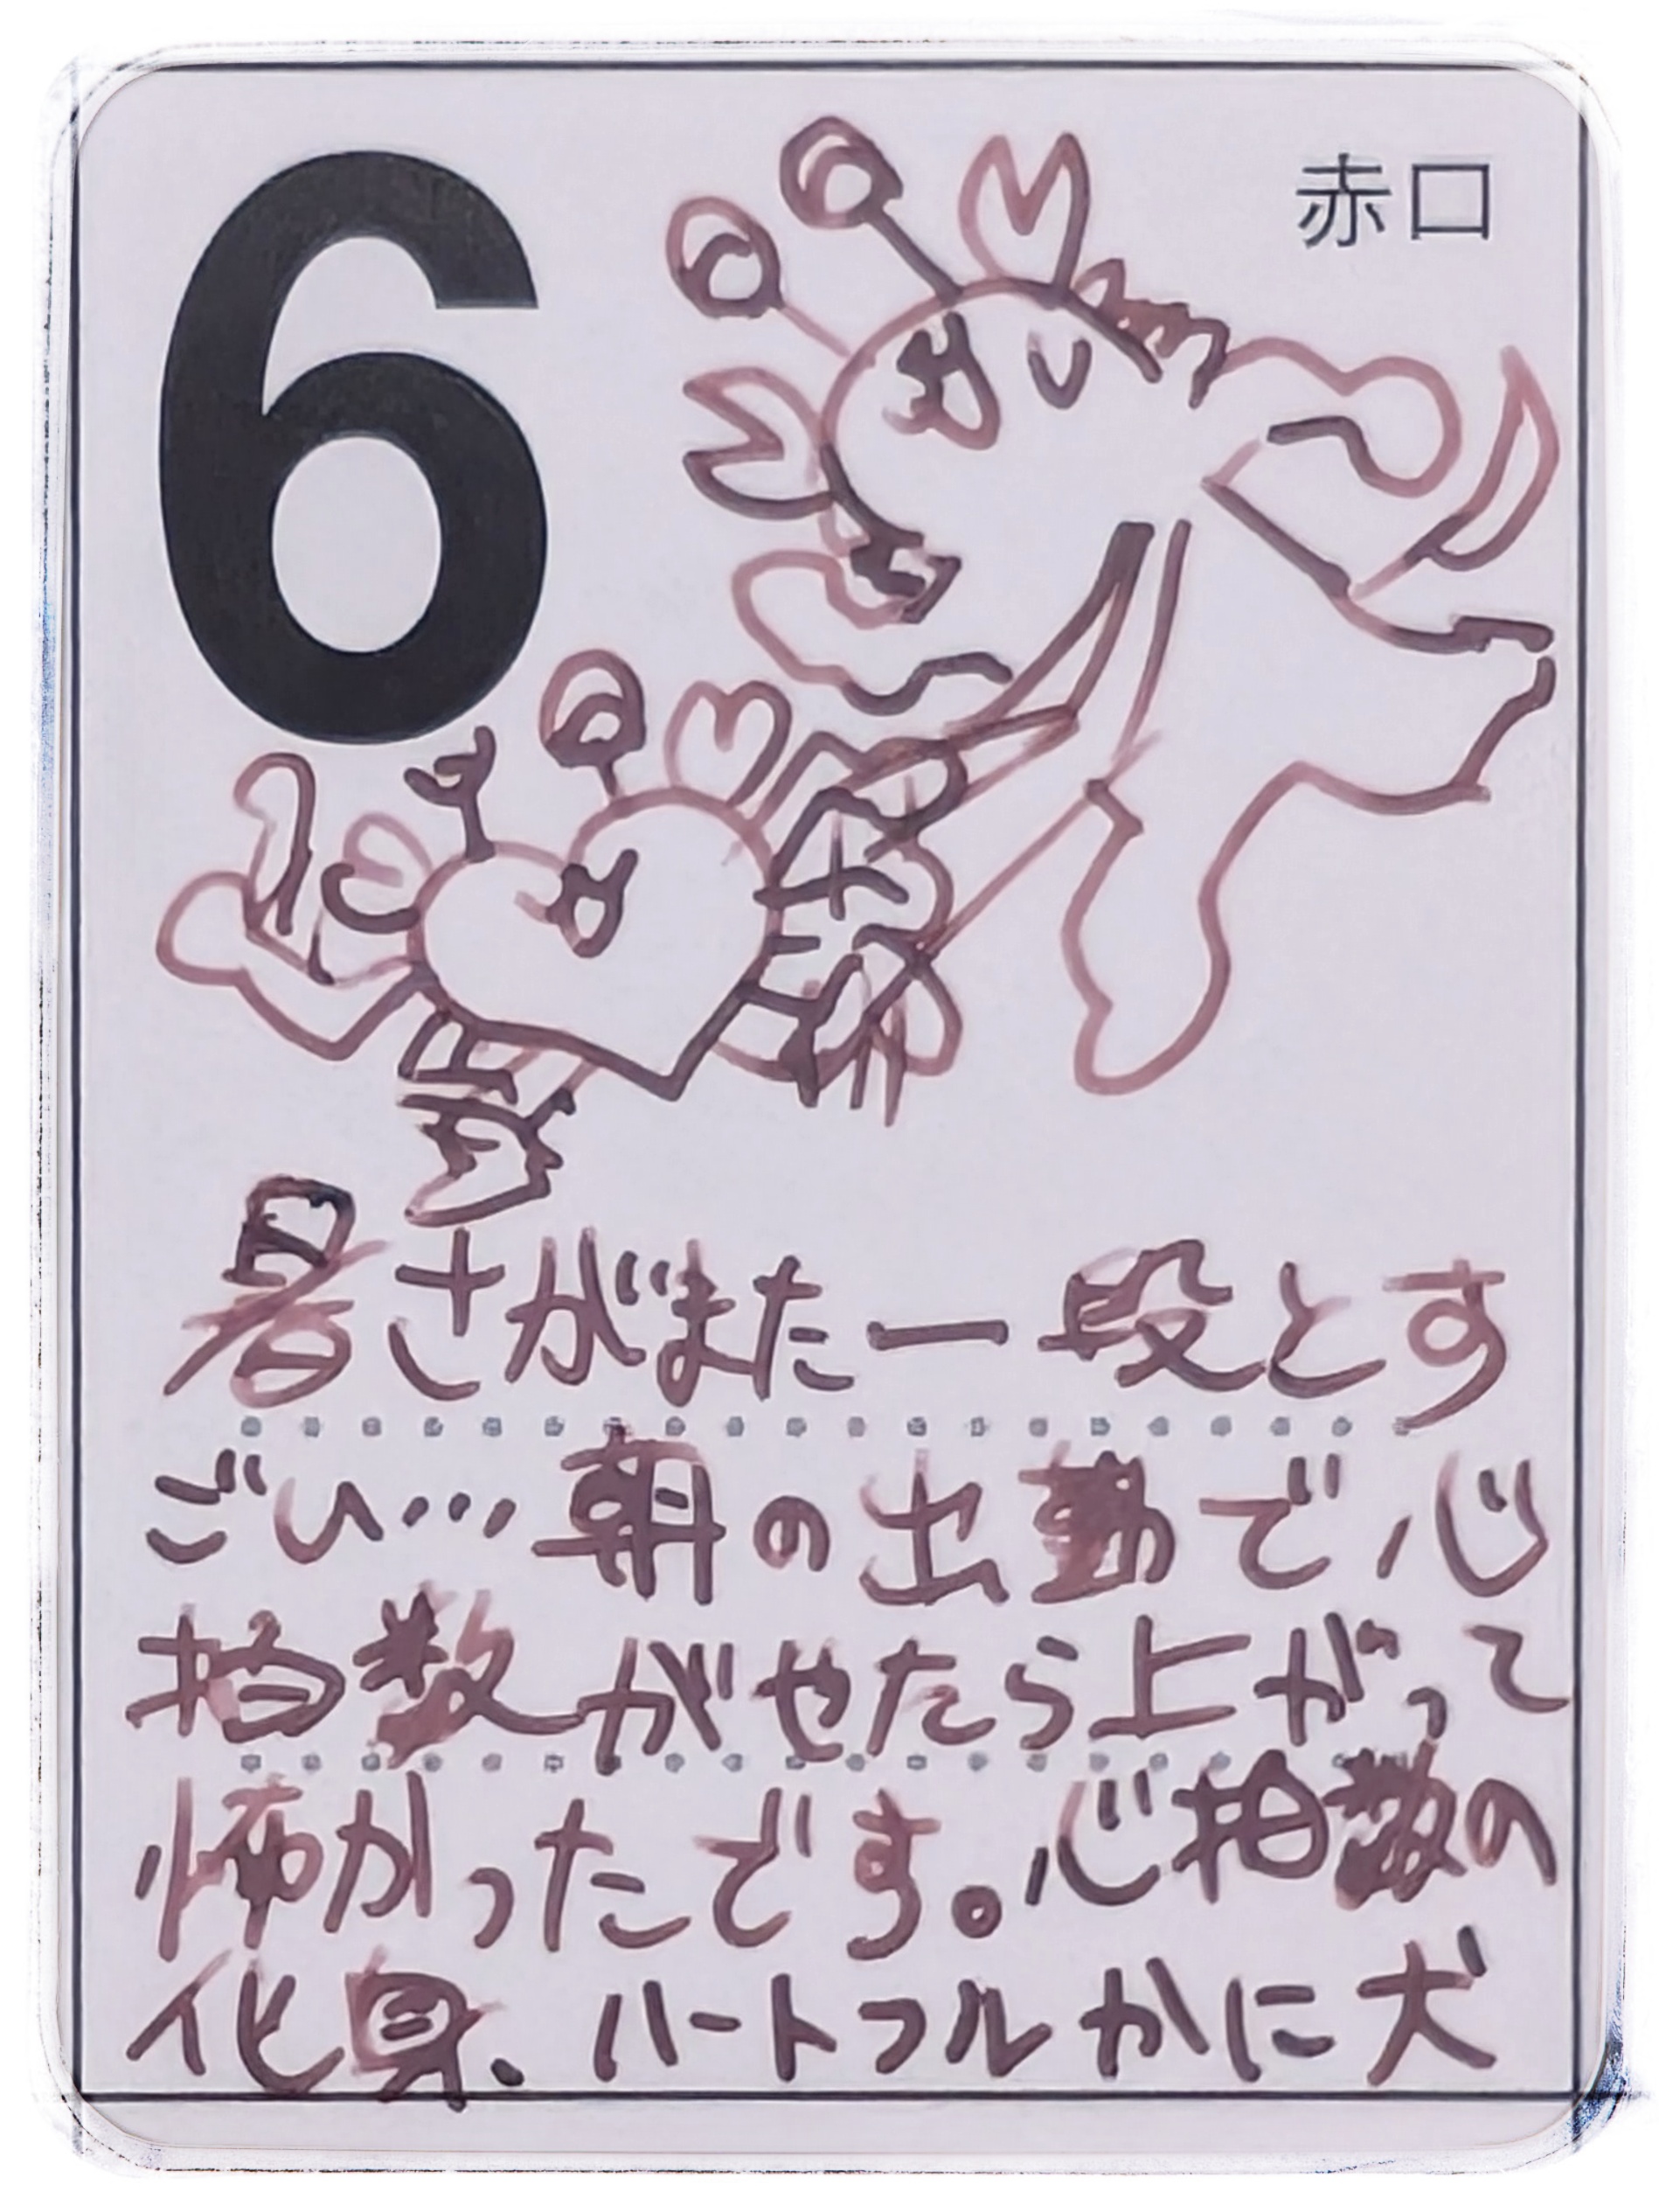 6
赤口
暑さがまた一段とす
ごい…朝の出勤で心
拍数がやたら上がって
怖かったです。心拍数の
化身、ハートフルかに犬